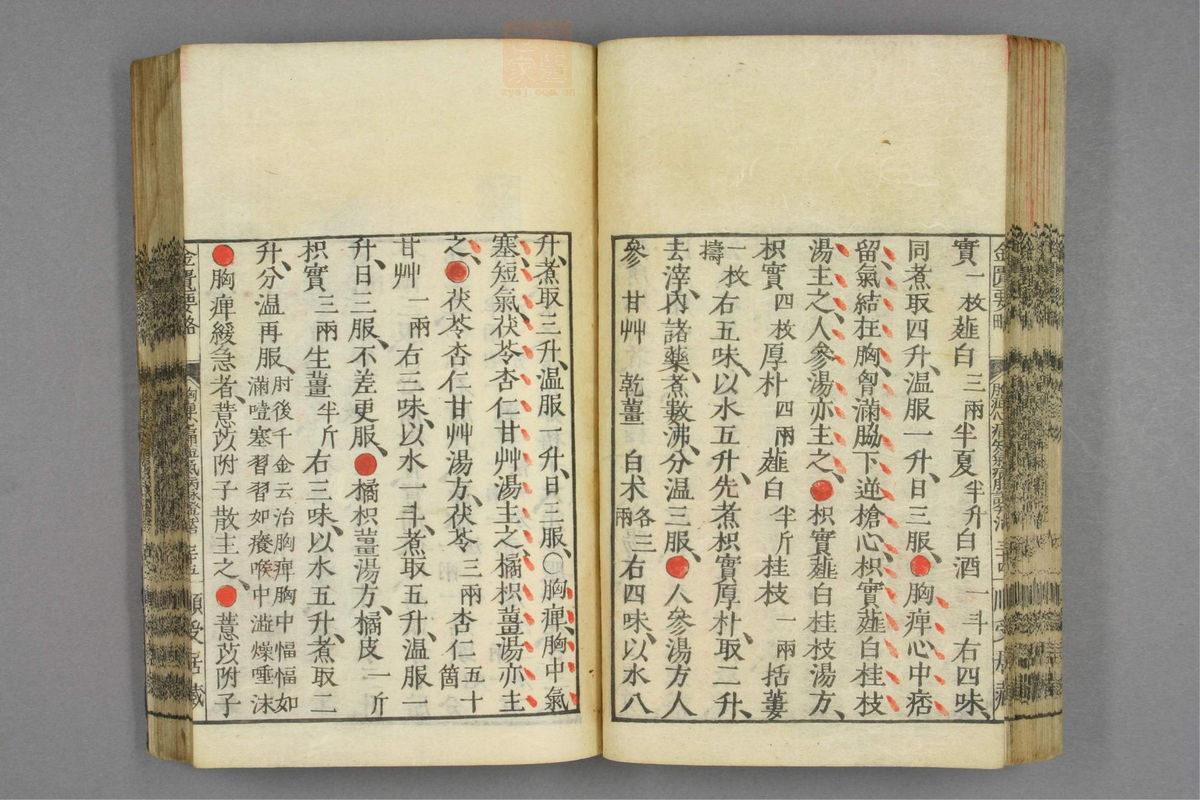 實一枚薤白三兩半夏半升白酒一斗右四味、
同煮取四升、温服一升、日三服、●胸痺心中痞
留氣結在胸、胸滿脇下逆槍心、枳實薤白桂枝
湯主之、人參湯亦主之、●枳實薤白桂枝湯方、
枳實四枚厚朴四兩薤白半斤桂枝一兩括蔞
一枚擣右五味、以水五升、先煮枳實厚朴、取二升、
去滓、内諸藥、煮數沸、分温三服、●人參湯方人
參 甘艸 乾薑 白术各三兩右四味、以水八
升、煮取三升、温服一升、日三服、○胸痺、胸中氣
塞、短氣、茯苓杏仁甘艸湯主之、橘枳薑湯亦主
之、●茯苓杏仁甘艸湯方、茯苓三兩杏仁五十箇
甘艸一兩右三味、以水一斗、煮取五升、温服一
升、日三服、不差更服、●橘枳薑湯方、橘皮一斤
枳實三兩生薑半斤右三味、以水五升、煮取二
升、分温再服、肘後千金云治胸痺胸中愊愊如滿噎塞習習如癢喉中澁燥唾沫
●胸痺緩急者、薏苡附子散主之、●薏苡附子
金匱要略
順受居藏